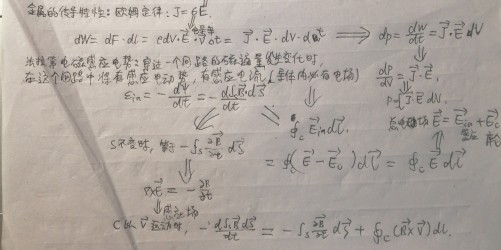 金属的传导特性：欧姆定律：J=σE.
dW = dF·dl = ρdV·E·V dt = J·E·dV·dt ⟹ dp = dW/dt = J·E dV
法拉第电磁感应电势：穿过一个回路的磁通量发生变化时，
在这个回路中将有感应电动势，有感应电流（导体内必有电场）
dp/dV = J·E,
P=∫J·E dV.
εin = -dψ/dt = -d∫sB·dS/dt
∮c Ein dl.
总电场 E = Ein + Ec
S不变时，等于 -∫s ∂B/∂t dS
= ∮c (E - Ec) dl = ∮c E dl
∇×E = -∂B/∂t
C以V运动时，-d∫sB dS/dt = -∫s ∂B/∂t dS + ∮c (B×V) dl.